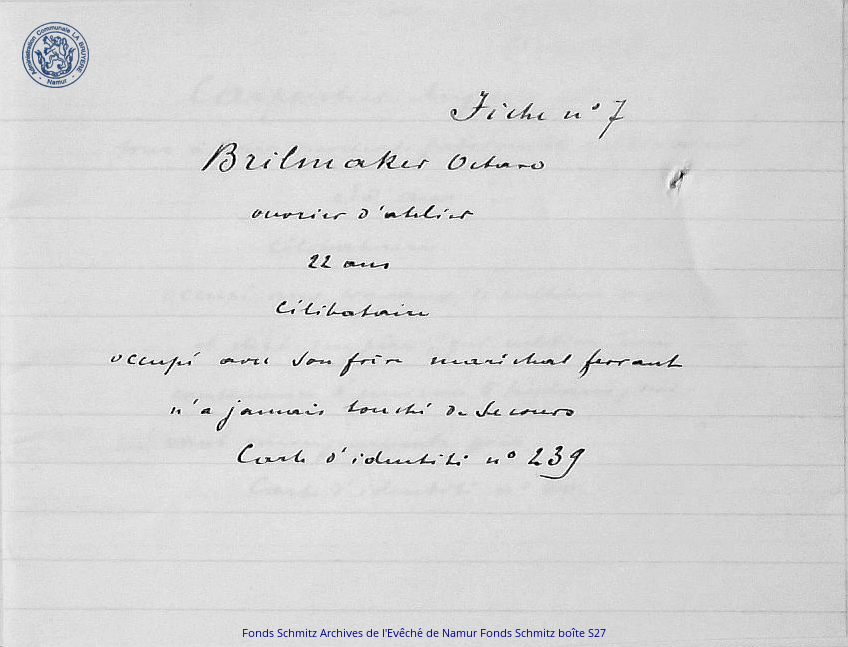 Administration Communale LA BRUYERE
Namur
Fiche n° 7
Brilmaker Octave
ouvrier d'atelier
22 ans
Célibataire
occupé avec son frère maréchal ferrant
n'a jamais touché de secours
Carte d'identité n° 239
Fonds Schmitz Archives de l'Evêché de Namur Fonds Schmitz boîte S27